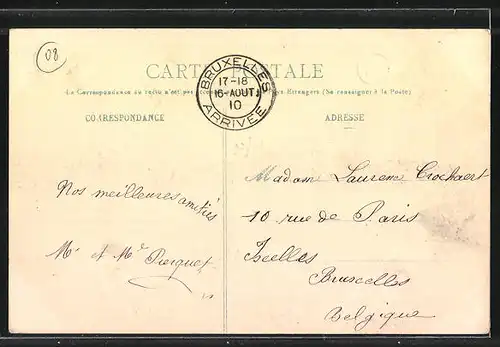 08
CARTE POSTALE
BRUXELLES
17-18
16-AOUT
10
ARRIVÉE
La Correspondance au recto n'est pas Étrangers (Se renseigner à la Poste)
CORRESPONDANCE
ADRESSE
Nos meilleures amitiés
Mr et Me Pierquet
Madame Laurence Crochaert
10 rue de Paris
Ixelles
Bruxelles
Belgique